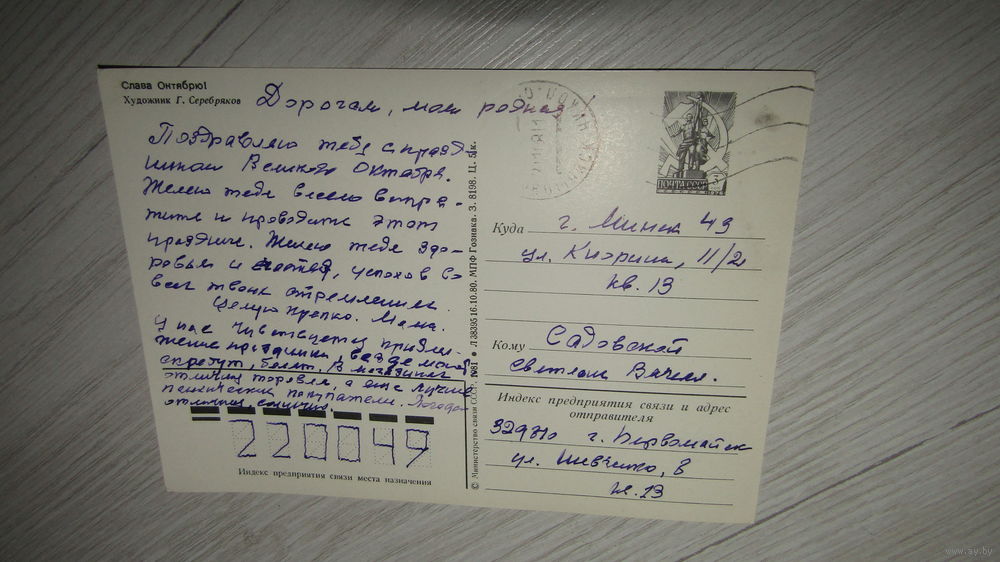 Слава Октябрю!
Художник Г. Серебряков
Дорогая, моя родная!
Поздравляю тебя с празд-
ником Великого Октября.
Желаю тебе весело встре-
тить и проводить этот
праздник. Желаю тебе здо-
ровья и счастья, успехов во
всех твоих стремлениях.
Целую крепко. Мама.
У нас чувствуется прибли-
жение праздника, везде моют,
скребут, белят. В магазинах
отличная торговля, а еще лучше
покупатели. Погода
отличная, солнечно.
220049
Индекс предприятия связи места назначения
© Министерство связи СССР. 1981 ● Л 38395 16.10.80. МПФ Гознака. З. 8198. Ц. 5 к.
ПОЧТА СССР
Куда г. Минск 49
ул. Кнорина, 11/2
кв. 13
Кому Садовской
Светлане Вячесл.
Индекс предприятия связи и адрес
отправителя
г. Первомайск
ул. Шевченко, 8
кв. 13
www.ay.by